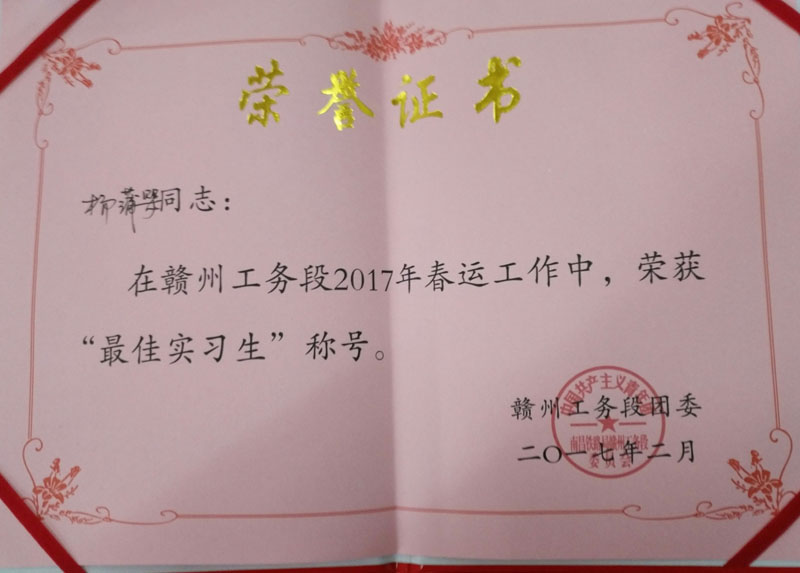 荣誉证书
同志：
在赣州工务段2017年春运工作中，荣获
“最佳实习生”称号。
赣州工务段团委
二〇一七年二月
中国共产主义青年团
南昌铁路局赣州工务段
委员会